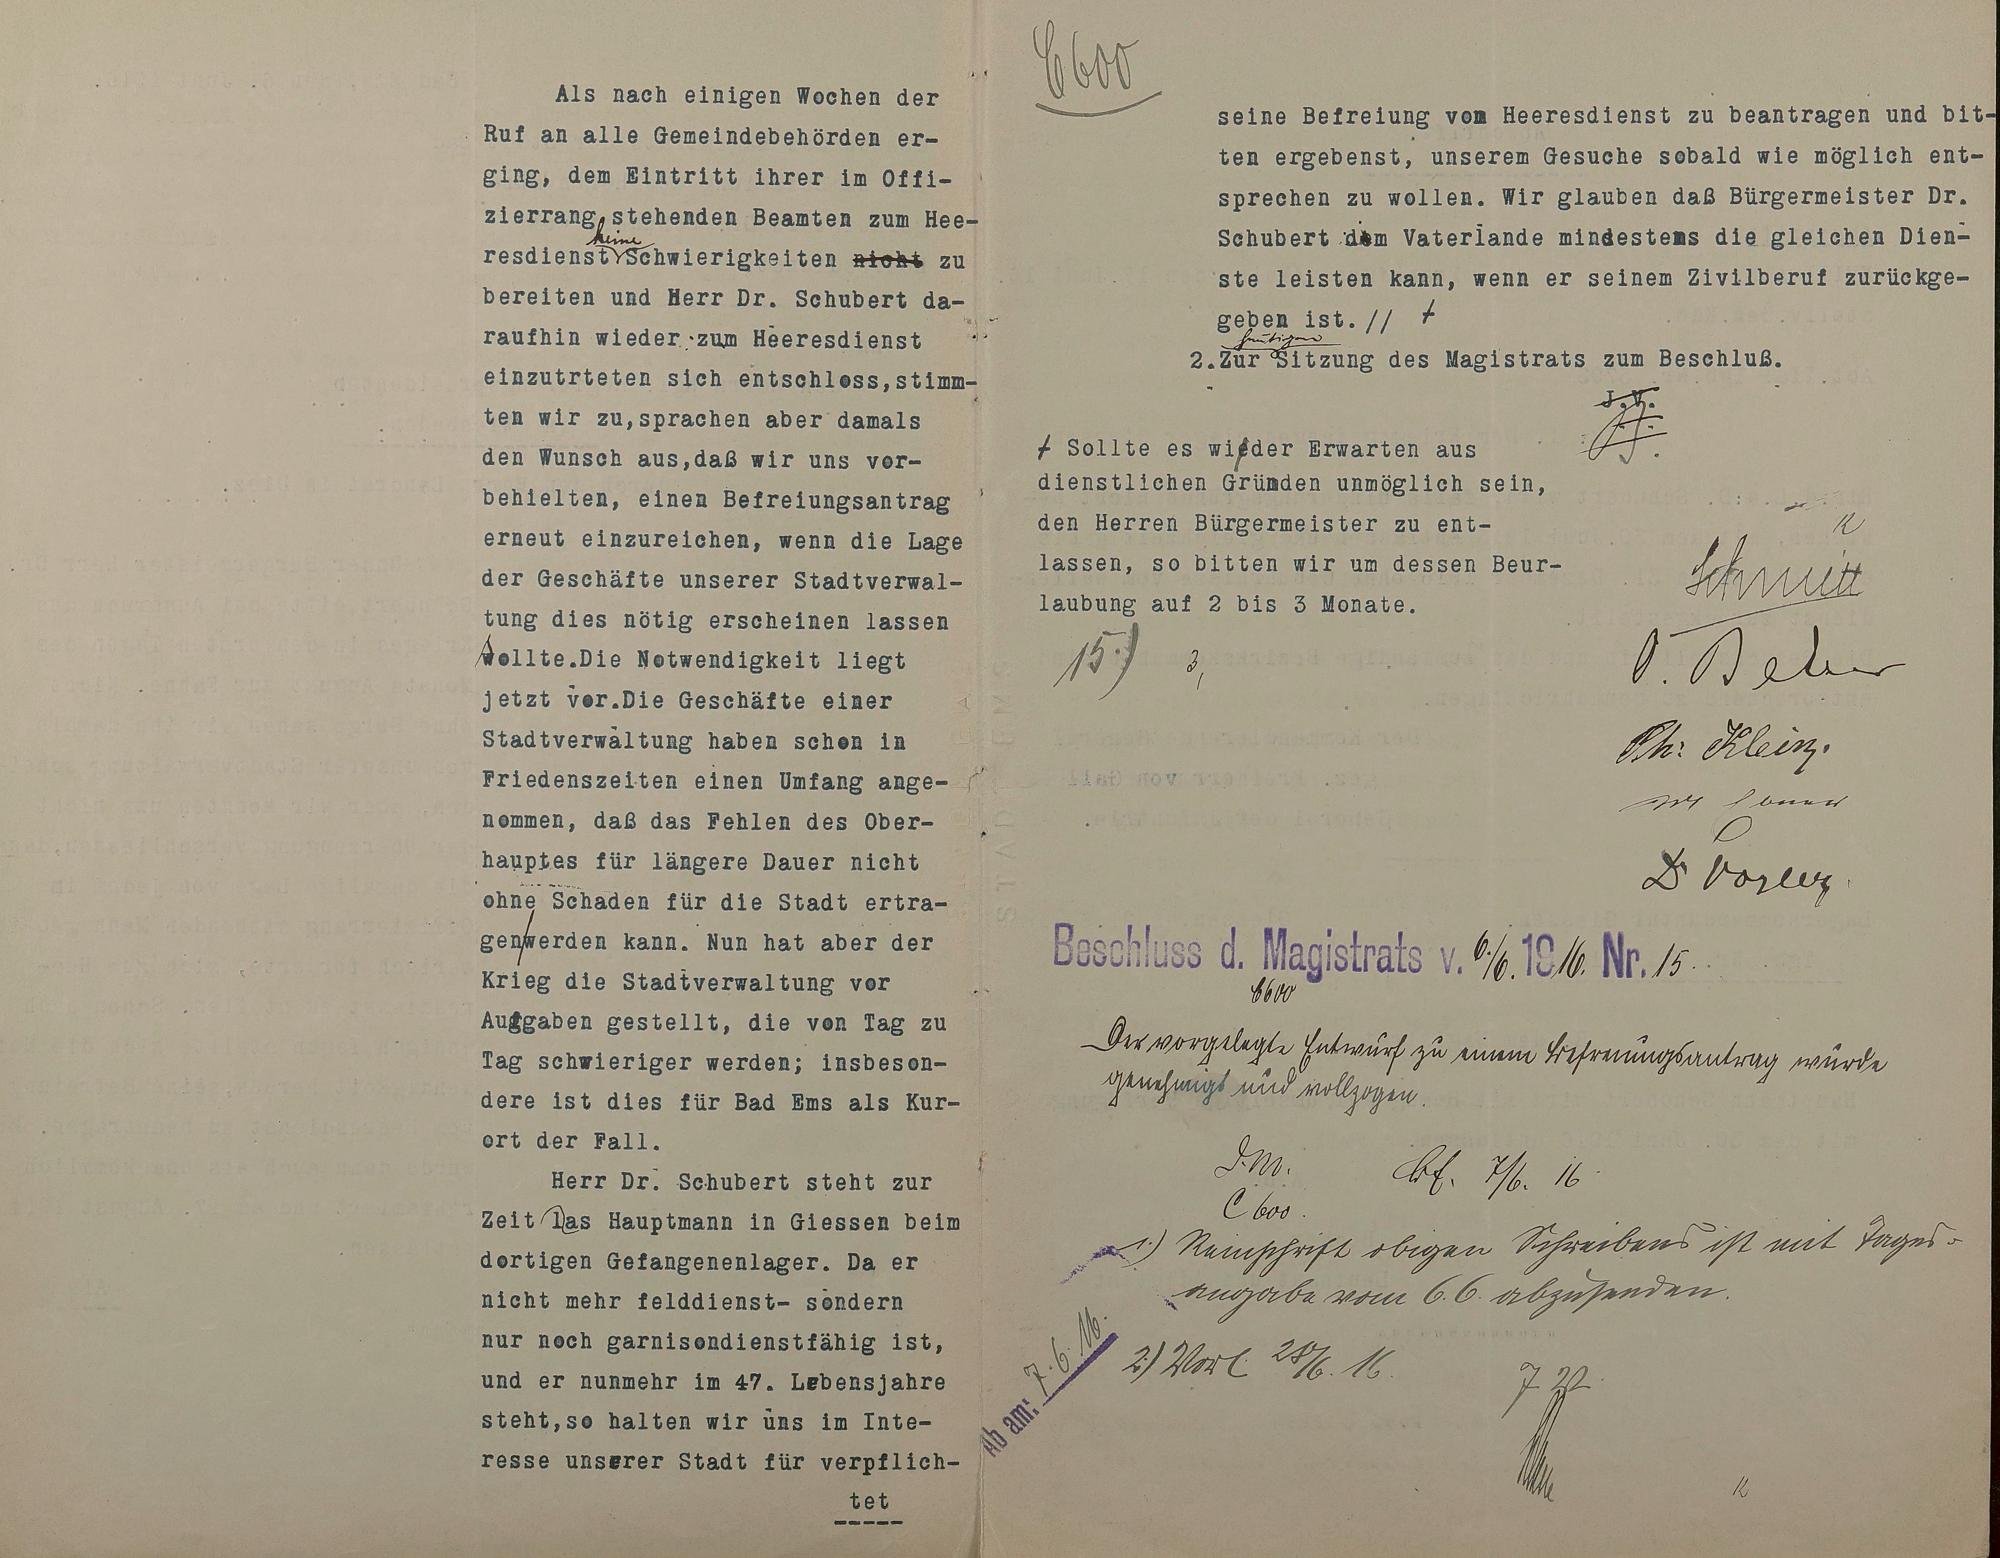 Als nach einigen Wochen der
Ruf an alle Gemeindebehörden er-
ging, dem Eintritt ihrer im Offi-
zierrang stehenden Beamten zum Hee-
keine
resdienst Schwierigkeiten nicht zu
bereiten und Herr Dr. Schubert da-
raufhin wieder zum Heeresdienst
einzutrteten sich entschloss,stimm-
ten wir zu,sprachen aber damals
den Wunsch aus,daß wir uns vor-
behielten, einen Befreiungsantrag
erneut einzureichen, wenn die Lage
der Geschäfte unserer Stadtverwal-
tung dies nötig erscheinen lassen
wollte.Die Notwendigkeit liegt
jetzt vor.Die Geschäfte einer
Stadtverwaltung haben schon in
Friedenszeiten einen Umfang ange-
nommen, daß das Fehlen des Ober-
hauptes für längere Dauer nicht
ohne Schaden für die Stadt ertra-
gen/werden kann. Nun hat aber der
Krieg die Stadtverwaltung vor
Aufgaben gestellt, die von Tag zu
Tag schwieriger werden; insbeson-
dere ist dies für Bad Ems als Kur-
ort der Fall.
Herr Dr. Schubert steht zur
Zeit las Hauptmann in Giessen beim
dortigen Gefangenenlager. Da er
nicht mehr felddienst- sondern
nur noch garnisondienstfähig ist,
und er nunmehr im 47. Lebensjahre
steht,so halten wir uns im Inte-
resse unserer Stadt für verpflich-
tet
C 600
seine Befreiung vom Heeresdienst zu beantragen und bit-
ten ergebenst, unserem Gesuche sobald wie möglich ent-
sprechen zu wollen. Wir glauben daß Bürgermeister Dr.
Schubert dem Vaterlande mindestens die gleichen Dien-
ste leisten kann, wenn er seinem Zivilberuf zurückge-
geben ist. // +
heutigen
2.Zur Sitzung des Magistrats zum Beschluß.
J.V.
+ Sollte es wieder Erwarten aus
dienstlichen Gründen unmöglich sein,
den Herren Bürgermeister zu ent-
lassen, so bitten wir um dessen Beur-
laubung auf 2 bis 3 Monate.
15.) 3,
Schmitt
Ph. Klein.
Beschluss d. Magistrats v. 6./6. 1916. Nr. 15.
C 600
Der vorgelegte Entwurf zu einem Befreiungsantrag wurde
genehmigt und vollzogen.
D.M. 7/6. 16
C 600.
1.) Reinschrift obigen Schreibens ist mit Tages-
angabe vom 6.6. abzusenden.
Ab am: 7.6.16.
2.) Vorl. 28/6. 16.